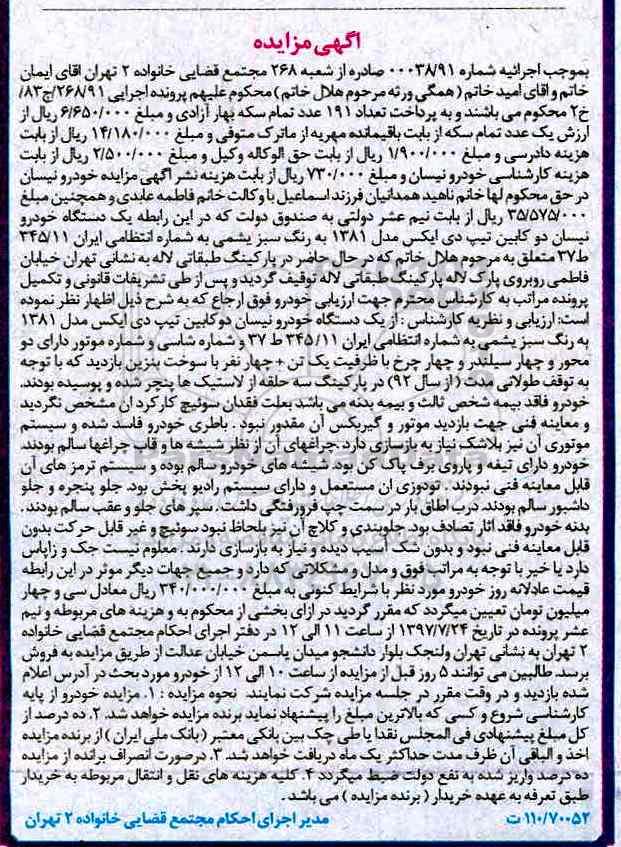 آگهی مزایده
بموجب اجرائیه شماره ۰۰۰۳۸/۹۱ صادره از شعبه ۲۶۸ مجتمع قضایی خانواده ۲ تهران آقای ایمان
خاتم و اقای امید خاتم (همگی ورثه مرحوم هلال خاتم) محکوم علیهم پرونده اجرایی ۲۶۸/۹۱/ج۸۳/
خ۲ محکوم می باشند و به پرداخت تعداد ۱۹۱ عدد تمام سکه بهار آزادی و مبلغ ۶/۶۵۰/۰۰۰ ریال از
ارزش یک عدد تمام سکه از بابت باقیمانده مهریه از ماترک متوفی و مبلغ ۱۴/۱۸۰/۰۰۰ ریال از بابت
هزینه دادرسی و مبلغ ۱/۹۰۰/۰۰۰ ریال از بابت حق الوکاله وکیل و مبلغ ۲/۵۰۰/۰۰۰ ریال از بابت
هزینه کارشناسی خودرو نیسان و مبلغ ۷۳۰/۰۰۰ ریال از بابت هزینه نشر آگهی مزایده خودرو نیسان
در حق محکوم لها خانم ناهید همدانیان فرزند اسماعیل با وکالت خانم فاطمه عابدی و همچنین مبلغ
۳۵/۵۷۵/۰۰۰ ریال از بابت نیم عشر دولتی به صندوق دولت که در این رابطه یک دستگاه خودرو
نیسان دو کابین تیپ دی ایکس مدل ۱۳۸۱ به رنگ سبز یشمی به شماره انتظامی ایران ۳۴۵/۱۱
ط۳۷ متعلق به مرحوم هلال خاتم که در حال حاضر در پارکینگ طبقاتی لاله به نشانی تهران خیابان
فاطمی روبروی پارک لاله پارکینگ طبقاتی لاله توقیف گردید و پس از طی تشریفات قانونی و تکمیل
پرونده مراتب به کارشناس محترم جهت ارزیابی خودرو فوق ارجاع که به شرح ذیل اظهار نظر نموده
است: ارزیابی و نظریه کارشناس : از یک دستگاه خودرو نیسان دوکابین تیپ دی ایکس مدل ۱۳۸۱
به رنگ سبز یشمی به شماره انتظامی ایران ۳۴۵/۱۱ ط ۳۷ و شماره شاسی و شماره موتور دارای دو
محور و چهار سیلندر و چهار چرخ با ظرفیت یک تن + چهار نفر با سوخت بنزین بازدید که با توجه
به توقف طولانی مدت (از سال ۹۲) در پارکینگ سه حلقه از لاستیک ها پنچر شده و پوسیده بودند.
خودرو فاقد بیمه شخص ثالث و بیمه بدنه می باشد بعلت فقدان سوئیچ کارکرد ان مشخص نگردید
و معاینه فنی جهت بازدید موتور و گیربکس آن مقدور نبود . باطری خودرو فاسد شده و سیستم
موتوری آن نیز بلاشک نیاز به بازسازی دارد .چراغهای آن از نظر شیشه ها و قاب چراغها سالم بودند.
خودرو دارای تیغه و پاروی برف پاک کن بود. شیشه های خودرو سالم بوده و سیستم ترمز های آن
قابل معاینه فنی نبودند . تودوزی ان مستعمل و دارای سیستم رادیو پخش بود. جلو پنجره و جلو
داشبور سالم بودند. درب اطاق بار در سمت چپ فرورفتگی داشت . سپر های جلو و عقب سالم بودند .
بدنه خودرو فاقد آثار تصادف بود. جلوبندی و کلاچ آن نیز بلحاظ نبود سوئیچ و غیر قابل حرکت بدون
قابل معاینه فنی نبود و بدون شک آسیب دیده و نیاز به بازسازی دارند . معلوم نیست جک و زاپاس
دارد یا خیر با توجه به مراتب فوق و مدل و مشکلاتی که دارد و جمیع جهات دیگر موثر در این رابطه
قیمت عادلانه روز خودرو مورد نظر با شرایط کنونی به مبلغ ۳۴۰/۰۰۰/۰۰۰ ریال معادل سی و چهار
میلیون تومان تعیین میگردد که مقرر گردید در ازای بخشی از محکوم به و هزینه های مربوطه و نیم
عشر پرونده در تاریخ ۱۳۹۷/۷/۲۴ از ساعت ۱۱ الی ۱۲ در دفتر اجرای احکام مجتمع قضایی خانواده
۲ تهران به نشانی تهران ولنجک بلوار دانشجو میدان یاسمن خیابان عدالت از طریق مزایده به فروش
برسد. طالبین می توانند ۵ روز قبل از مزایده از ساعت ۱۰ الی ۱۲ از خودرو مورد بحث در آدرس اعلام
شده بازدید و در وقت مقرر در جلسه مزایده شرکت نمایند. نحوه مزایده : ۱. مزایده خودرو از پایه
کارشناسی شروع و کسی که بالاترین مبلغ را پیشنهاد نماید برنده مزایده خواهد شد. ۲. ده درصد از
کل مبلغ پیشنهادی فی المجلس نقدا یا طی چک بین بانکی معتبر (بانک ملی ایران) از برنده مزایده
اخذ و الباقی آن ظرف مدت حداکثر یک ماه دریافت خواهد شد. ۳. درصورت انصراف برانده از مزایده
ده درصد واریز شده به نفع دولت ضبط میگردد ۴. کلیه هزینه های نقل و انتقال مربوطه به خریدار
طبق تعرفه به عهده خریدار (برنده مزایده) می باشد .
۱۱۰/۷۰۰۵۲ ت مدیر اجرای احکام مجتمع قضایی خانواده ۲ تهران